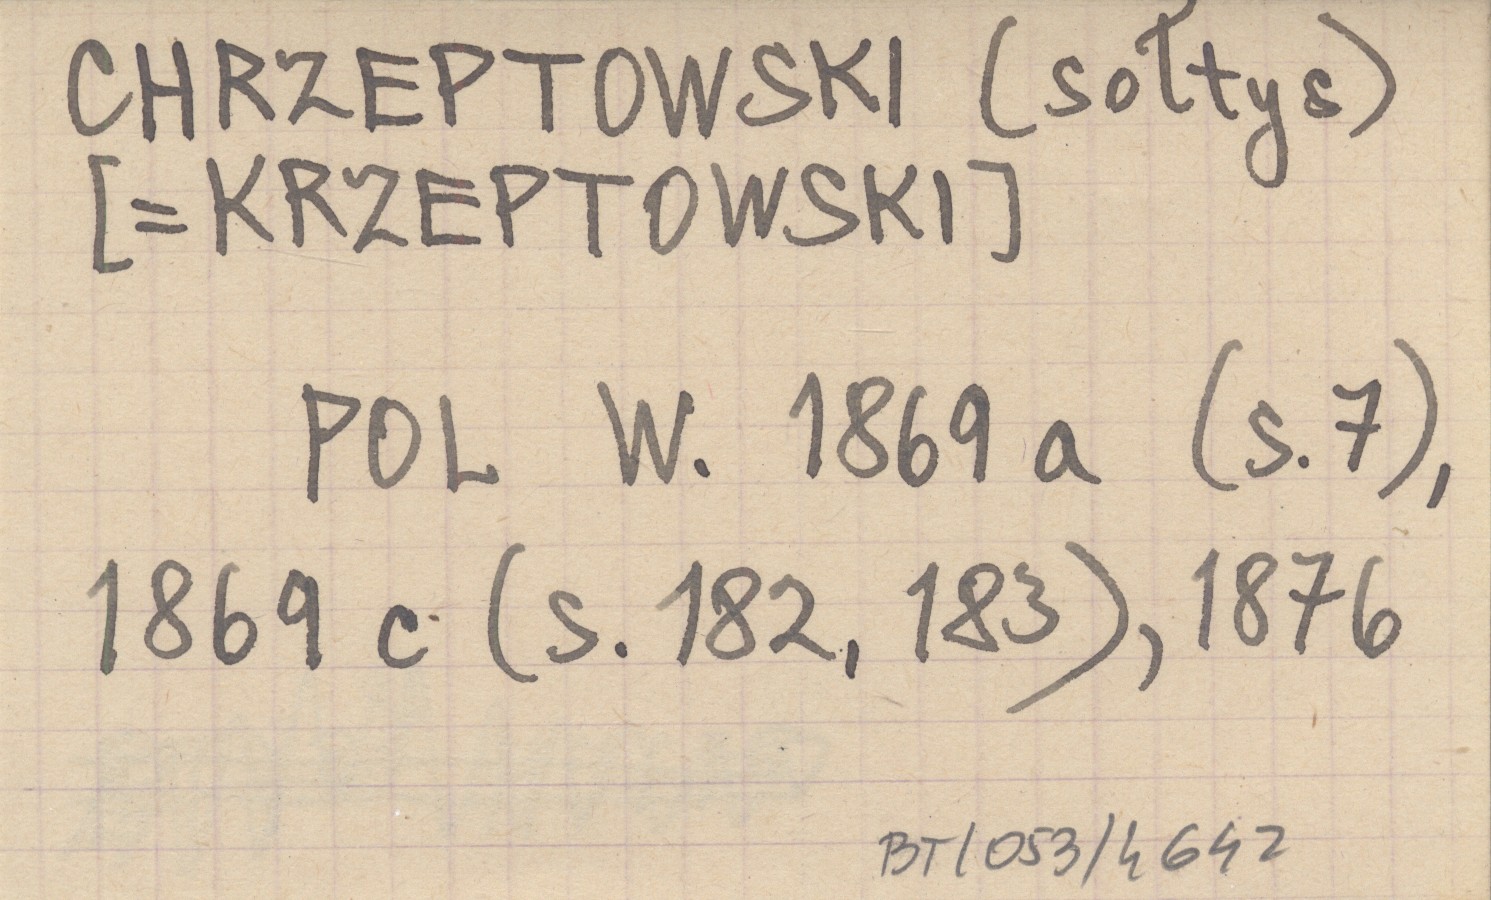 CHRZEPTOWSKI (sołtys)
[=KRZEPTOWSKI]
POL W. 1869 a (s. 7),
1869 c (s. 182, 183), 1876
BT/053/4642